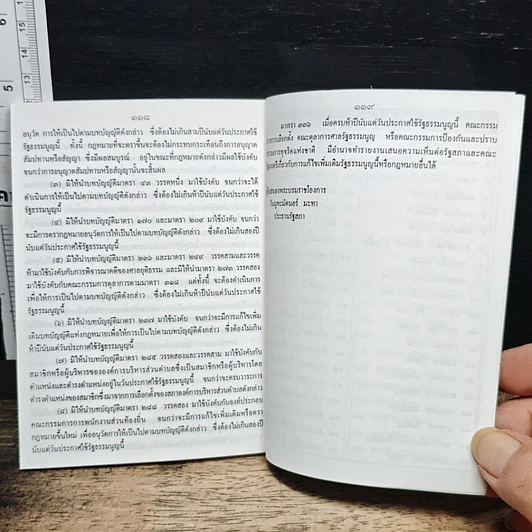 ๑๑๘
อนุวัต การให้เป็นไปตามบทบัญญัติดังกล่าว ซึ่งต้องไม่เกินสามปีนับแต่วันประกาศใช้
รัฐธรรมนูญนี้ ทั้งนี้ กฎหมายที่จะตราขึ้นจะต้องไม่กระทบกระเทือนถึงการอนุญาต
สัมปทานหรือสัญญา ซึ่งมีผลสมบูรณ์ อยู่ในขณะที่กฎหมายดังกล่าวมีผลใช้บังคับ
จนกว่าการอนุญาตสัมปทานหรือสัญญานั้นจะสิ้นผล
(๓) มิให้นำบทบัญญัติมาตรา ๔๓ วรรคหนึ่ง มาใช้บังคับ จนกว่าจะได้
ดำเนินการให้เป็นไปตามบทบัญญัติดังกล่าว ซึ่งต้องไม่เกินห้าปีนับแต่วันประกาศใช้
รัฐธรรมนูญนี้
(๔) มิให้นำบทบัญญัติมาตรา ๑๗๐ และมาตรา ๒๐๙ มาใช้บังคับ จนกว่า
จะมีการตรากฎหมายอนุวัตการให้เป็นไปตามบทบัญญัติดังกล่าว ซึ่งต้องไม่เกินสองปี
นับแต่วันประกาศใช้รัฐธรรมนูญนี้
(๕) มิให้นำบทบัญญัติมาตรา ๒๓๖ และมาตรา ๒๔๙ วรรคสามและวรรค
ห้ามาใช้บังคับกับการพิจารณาคดีของศาลยุติธรรม และมิให้นำมาตรา ๒๗๓ วรรคสอง
มาใช้บังคับกับคณะกรรมการตุลาการตามมาตรา ๓๑๘ แต่ทั้งนี้ จะต้องดำเนินการ
เพื่อให้การเป็นไปตามบทบัญญัติดังกล่าว ซึ่งต้องไม่เกินห้าปีนับแต่วันประกาศใช้
รัฐธรรมนูญนี้
(๖) มิให้นำบทบัญญัติมาตรา ๒๓๗ มาใช้บังคับ จนกว่าจะมีการแก้ไขเพิ่ม
เติมบทบัญญัติแห่งกฎหมายเพื่อให้การเป็นไปตามบทบัญญัติดังกล่าว ซึ่งต้องไม่เกิน
ห้าปีนับแต่วันประกาศใช้รัฐธรรมนูญนี้
(๗) มิให้นำบทบัญญัติมาตรา ๒๘๕ วรรคสองและวรรคสาม มาใช้บังคับกับ
สมาชิกหรือผู้บริหารขององค์การบริหารส่วนตำบลซึ่งเป็นสมาชิกหรือผู้บริหารโดย
ตำแหน่งและดำรงตำแหน่งอยู่ในวันประกาศใช้รัฐธรรมนูญนี้ จนกว่าจะครบวาระการ
ดำรงตำแหน่งของสมาชิกซึ่งมาจากการเลือกตั้งของสภาองค์การบริหารส่วนตำบลดังกล่าว
(๘) มิให้นำบทบัญญัติมาตรา ๒๘๘ วรรคสอง มาใช้บังคับกับองค์ประกอบ
คณะกรรมการการพนักงานส่วนท้องถิ่น จนกว่าจะมีการแก้ไขเพิ่มเติมหรือตรา
กฎหมายขึ้นใหม่ เพื่ออนุวัตการให้เป็นไปตามบทบัญญัติดังกล่าว ซึ่งต้องไม่เกินสองปี
นับแต่วันประกาศใช้รัฐธรรมนูญนี้
๑๑๙
มาตรา ๓๓๖ เมื่อครบห้าปีนับแต่วันประกาศใช้รัฐธรรมนูญนี้ คณะกรรม
การเลือกตั้ง คณะตุลาการศาลรัฐธรรมนูญ หรือคณะกรรมการป้องกันและปราบ
ปรามการทุจริตแห่งชาติ มีอำนาจทำรายงานเสนอความเห็นต่อรัฐสภาและคณะ
รัฐมนตรีเกี่ยวกับการแก้ไขเพิ่มเติมรัฐธรรมนูญนี้หรือกฎหมายอื่นได้
ผู้รับสนองพระบรมราชโองการ
วันมูหะมัดนอร์ มะทา
ประธานรัฐสภา